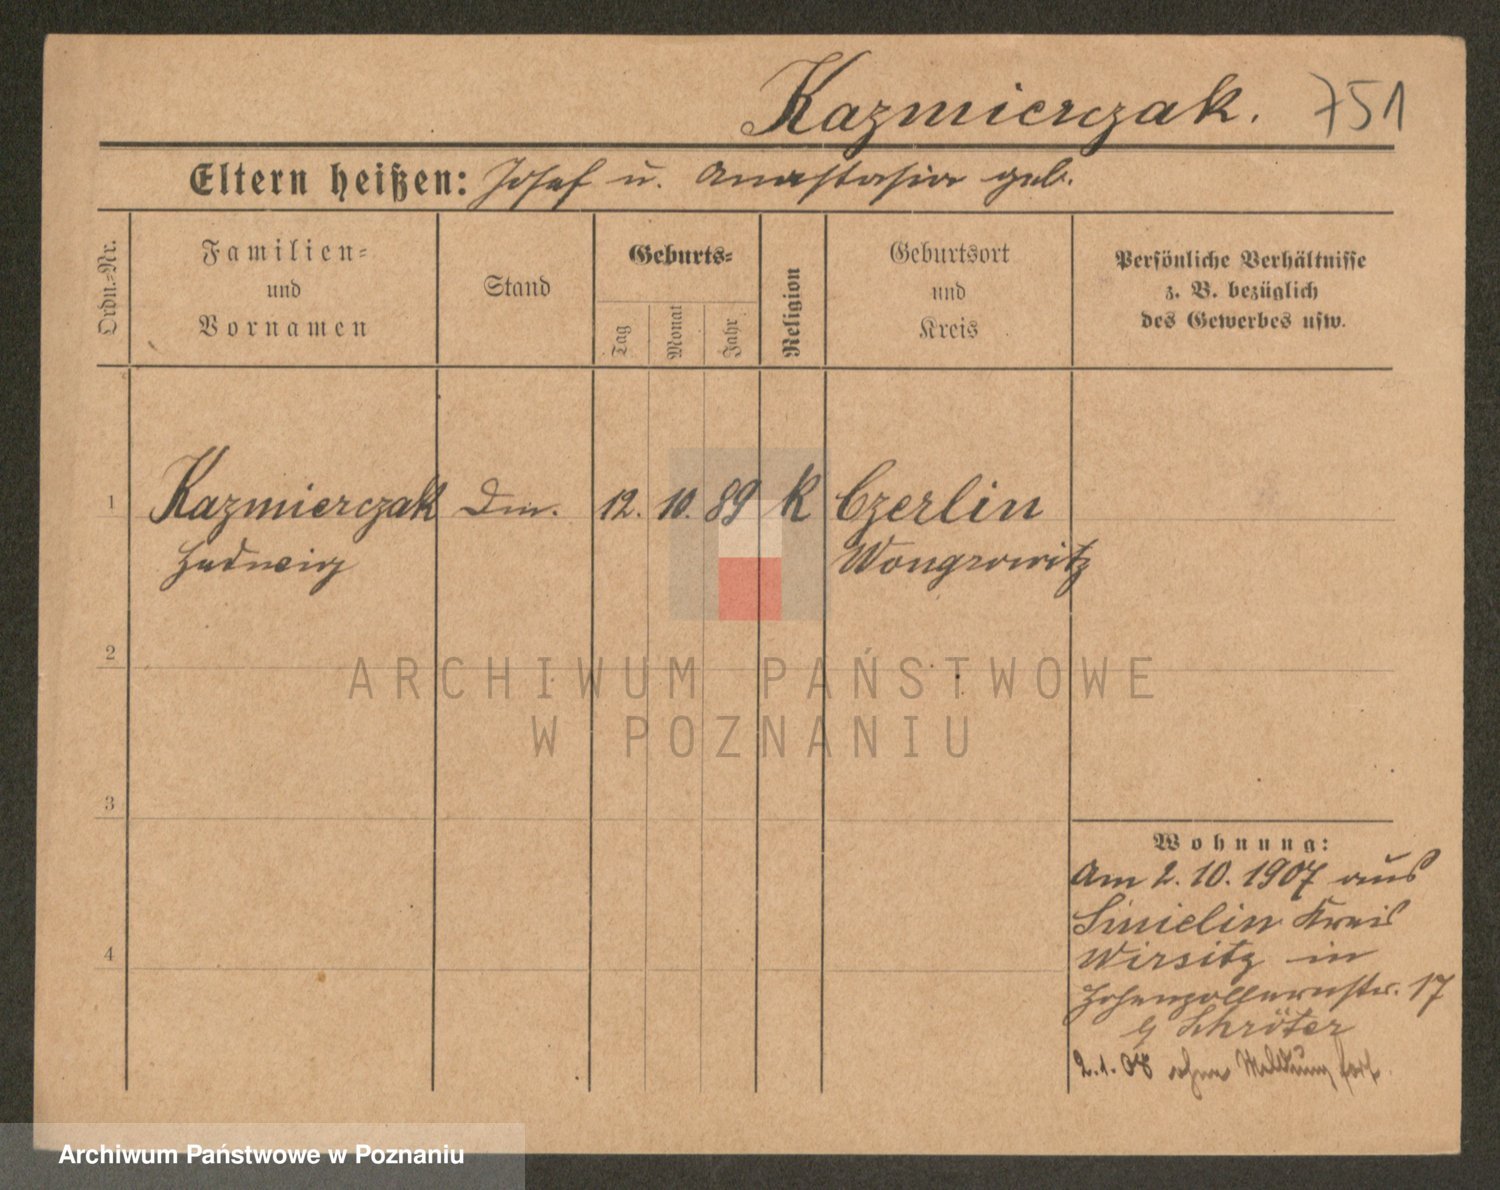 Kazmierczak. 751
Eltern heißen: Josef u. Anastasia geb.
Ordn.-Nr.
Familien-
und
Vornamen
Stand
Geburts-
Tag
Monat
Jahr
Religion
Geburtsort
und
Kreis
Persönliche Verhältnisse
z. B. bezüglich
des Gewerbes usw.
1 Kazmierczak 12. 10. 89 K Czerlin
Hedwig Wongrowitz
2
3
4
Wohnung:
Am 2. 10. 1907 aus
Kreis
Wirsitz in
Hohenzollernstr. 17
Schröter
2. 1. 08 ohne Meldung fort.
ARCHIWUM PAŃSTWOWE
W POZNANIU
Archiwum Państwowe w Poznaniu